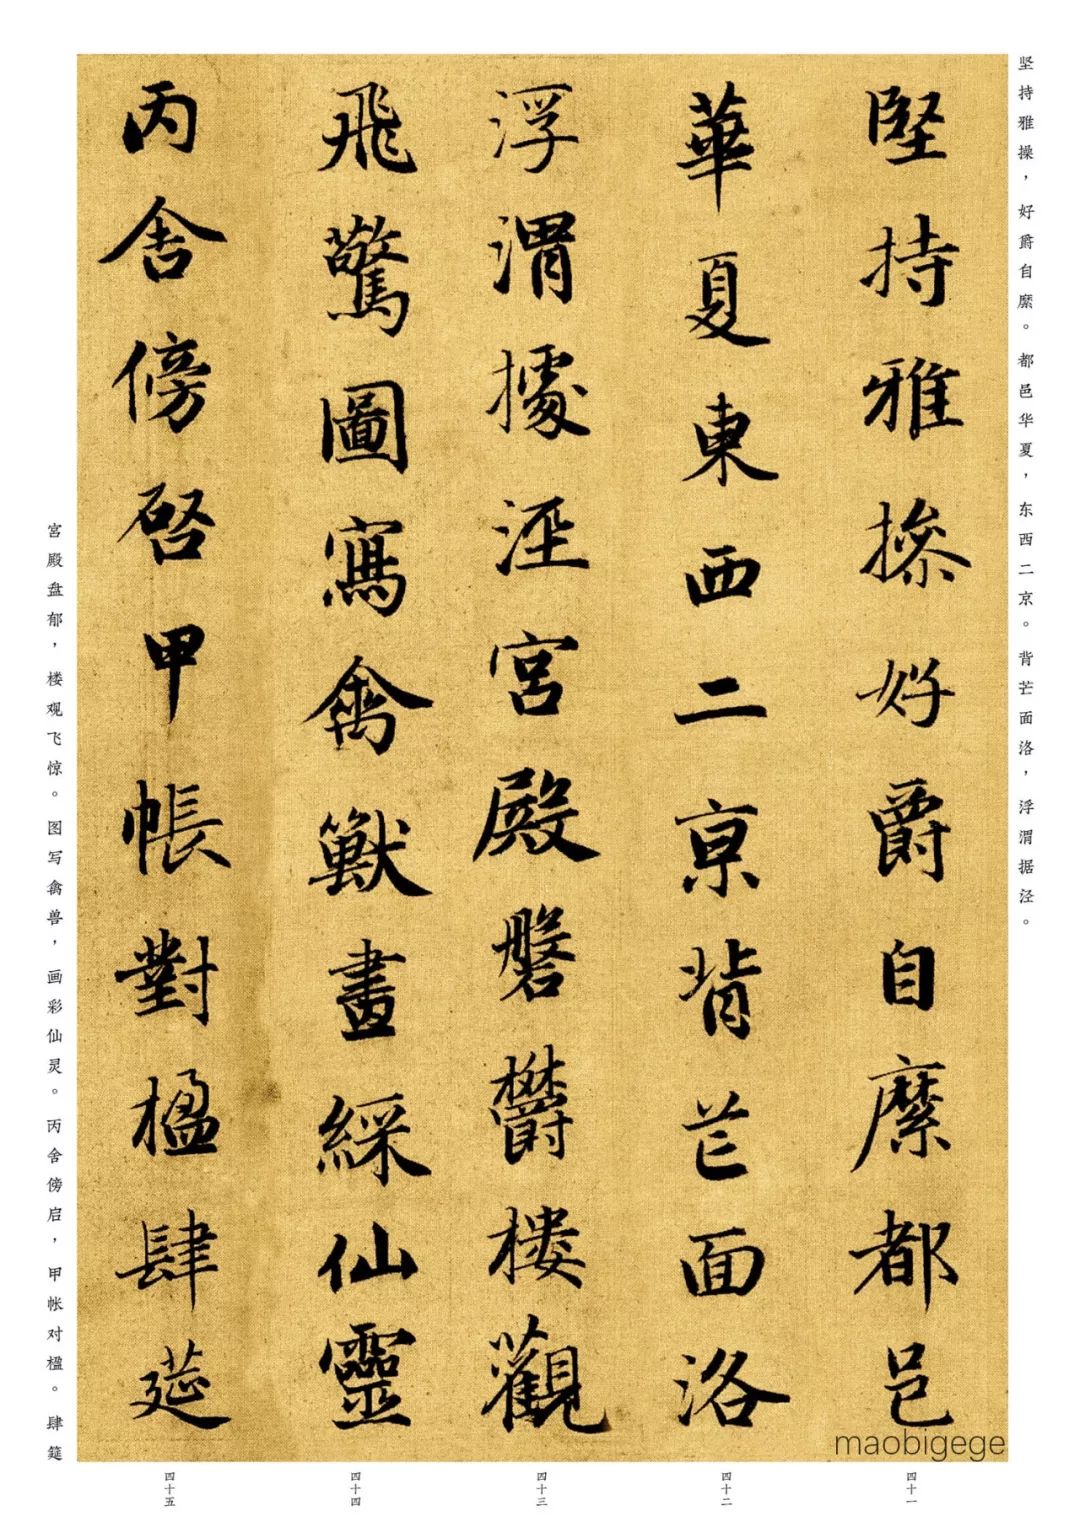 坚持雅操，好爵自縻。都邑华夏，东西二京。背芒面洛，浮渭据泾。
堅持雅操好爵自縻都邑
華夏東西二京背芒面洛
浮渭據涇宮殿磐鬱樓觀
飛驚圖寫禽獸畫綵仙靈
丙舍傍啓甲帳對楹肆筵
宫殿盘郁，楼观飞惊。图写禽兽，画彩仙灵。丙舍傍启，甲帐对楹。肆筵
maobigege
四十一
四十二
四十三
四十四
四十五